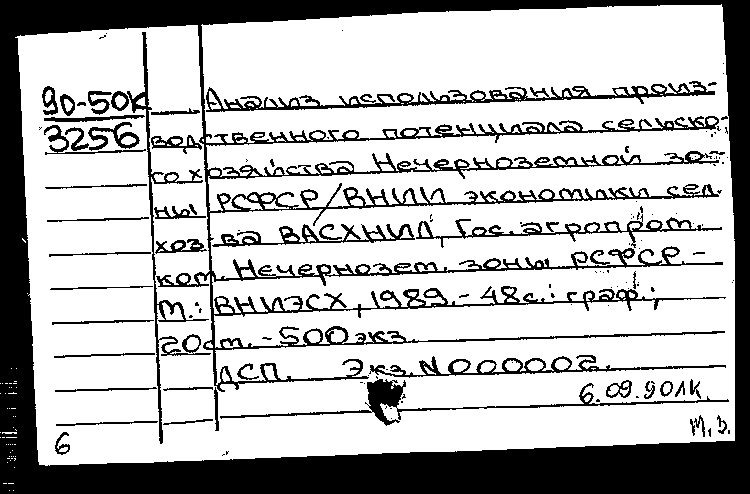 90-50К Анализ использования произ-
3256 водственного потенциала сельско-
го хозяйства Нечерноземной зо-
ны РСФСР/ВНИИ экономики сел.
хоз-ва ВАСХНИЛ, Гос. агропром.
ком. Нечернозем. зоны РСФСР.-
М.: ВНИЭСХ, 1989.- 48с.: граф.;
20см. - 500экз.
ДСП. Экз. N000002.
6.09.90ЛК.
6